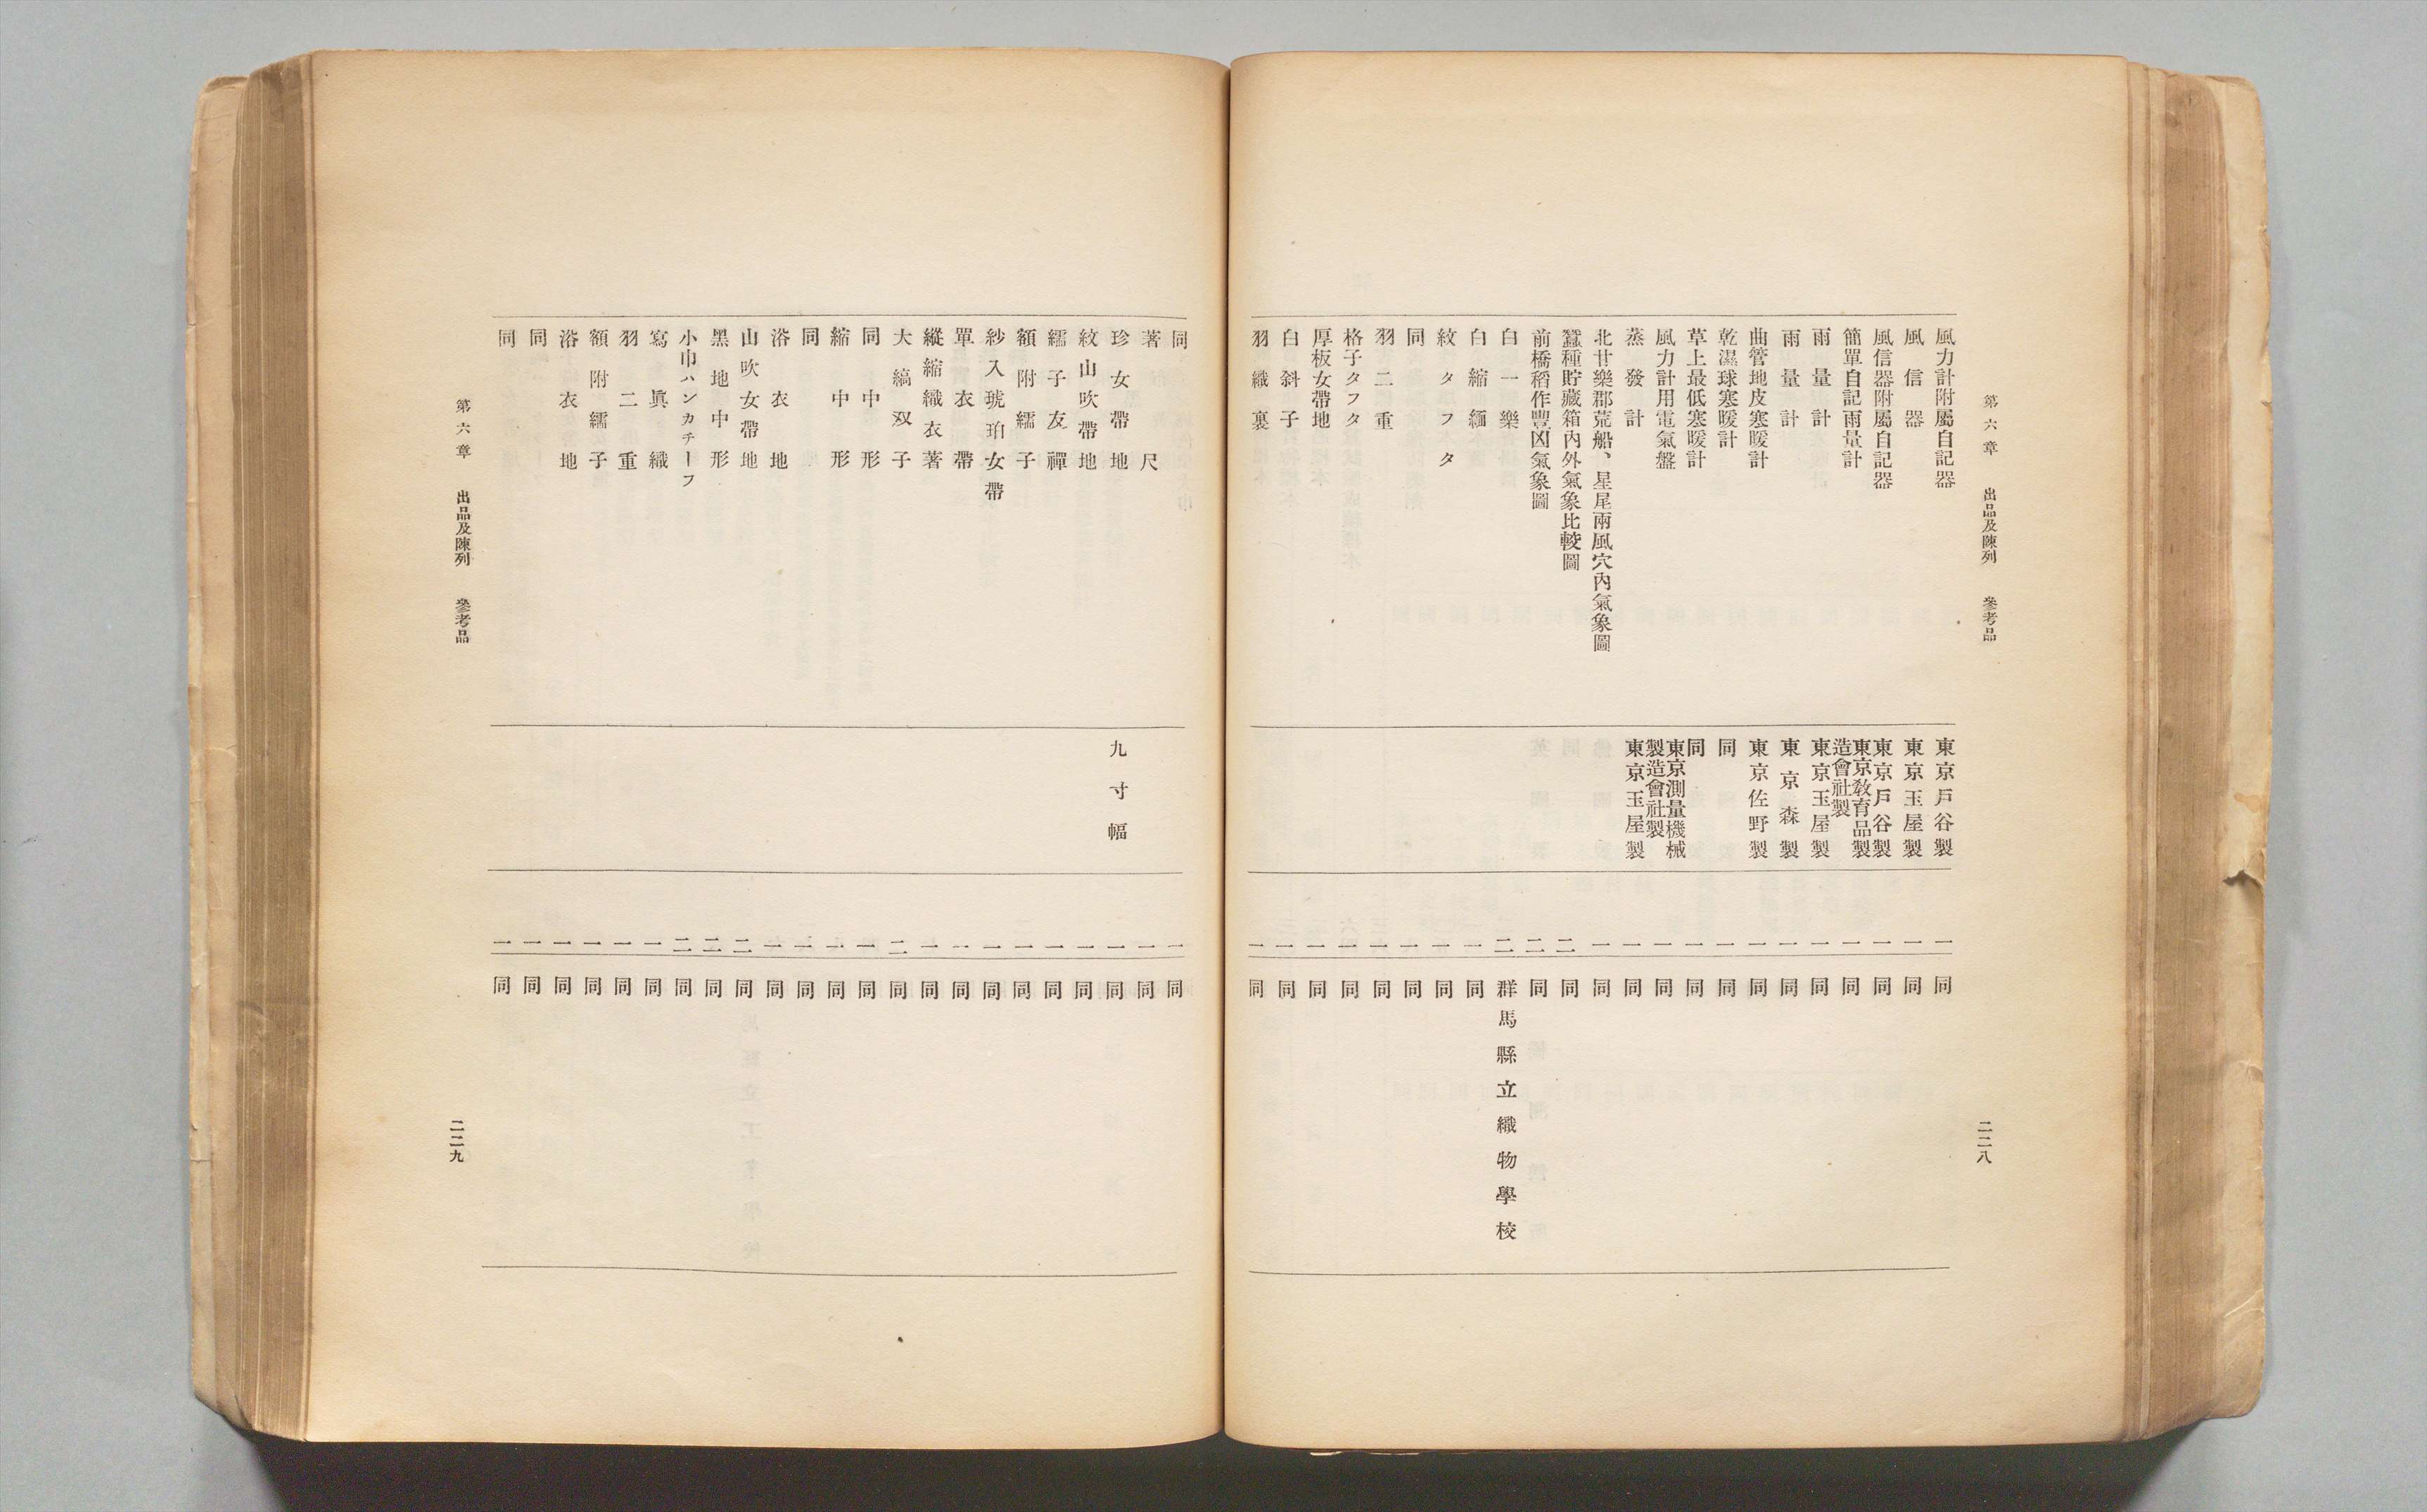 第六章　出品及陳列　參考品
二二八
風力計附屬自記器　東京戶谷製　一　同
風信器　東京玉屋製　一　同
風信器附屬自記器　東京戶谷製　一　同
簡單自記雨量計　東京敎育品製造會社製　一　同
雨量計　東京玉屋製　一　同
雨量計　東京森製　一　同
曲管地皮寒暖計　東京佐野製　一　同
乾濕球寒暖計　同　一　同
草上最低寒暖計　同　一　同
風力計用電氣盤　東京測量機械製造會社製　一　同
蒸發計　東京玉屋製　一　同
北甘樂郡荒船、星尾兩風穴內氣象圖　一　同
蠶種貯藏箱內外氣象比較圖　二　同
前橋稻作豐凶氣象圖　二　同
白一樂　二　群馬縣立織物學校
白縮緬　一　同
紋タフタ　一　同
同　一　同
羽二重　一　同
格子タフタ　一　同
厚板女帶地　一　同
白斜子　一　同
羽織裏　一　同
同　一　同
著尺　一　同
珍女帶地　九寸幅　一　同
紋山吹帶地　一　同
繻子友禪　一　同
額附繻子　一　同
紗入琥珀女帶　一　同
單衣帶　一　同
縱縮織衣著　一　同
大縞双子　二　同
同中形　一　同
縮中形　一　同
同　一　同
浴衣地　一　同
山吹女帶地　二　同
黑地中形　二　同
小巾ハンカチーフ　二　同
寫眞織　一　同
羽二重　一　同
額附繻子　一　同
浴衣地　一　同
同　一　同
同　一　同
第六章　出品及陳列　參考品
二二九